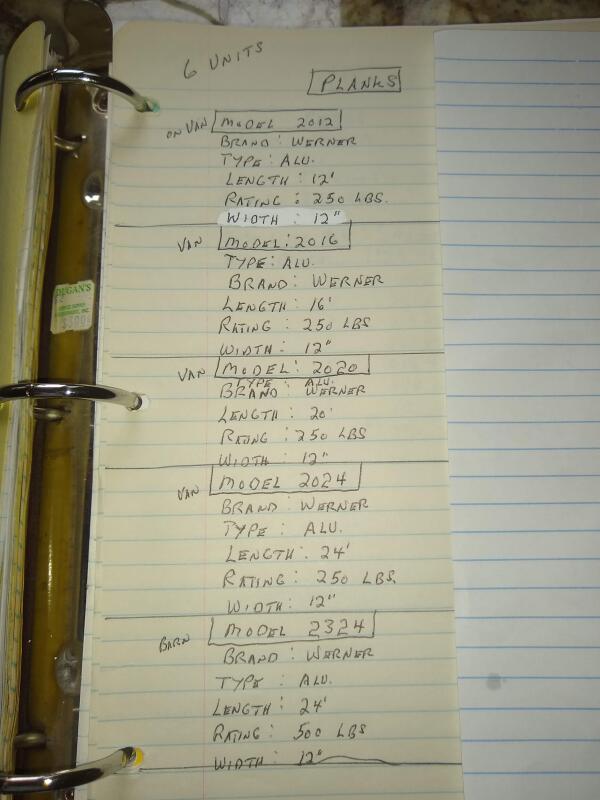 6 UNITS
PLANKS
ON VAN MODEL 2012
BRAND: WERNER
TYPE: ALU.
LENGTH: 12'
RATING: 250 LBS.
WIDTH: 12"
VAN MODEL: 2016
TYPE: ALU.
BRAND: WERNER
LENGTH: 16'
RATING: 250 LBS
WIDTH: 12"
VAN MODEL: 2020
TYPE: ALU.
BRAND: WERNER
LENGTH: 20'
RATING: 250 LBS
WIDTH: 12"
VAN MODEL 2024
BRAND: WERNER
TYPE: ALU.
LENGTH: 24'
RATING: 250 LBS
WIDTH: 12"
BARN MODEL 2324
BRAND: WERNER
TYPE: ALU.
LENGTH: 24'
RATING: 500 LBS
WIDTH: 12"
DUGAN'S